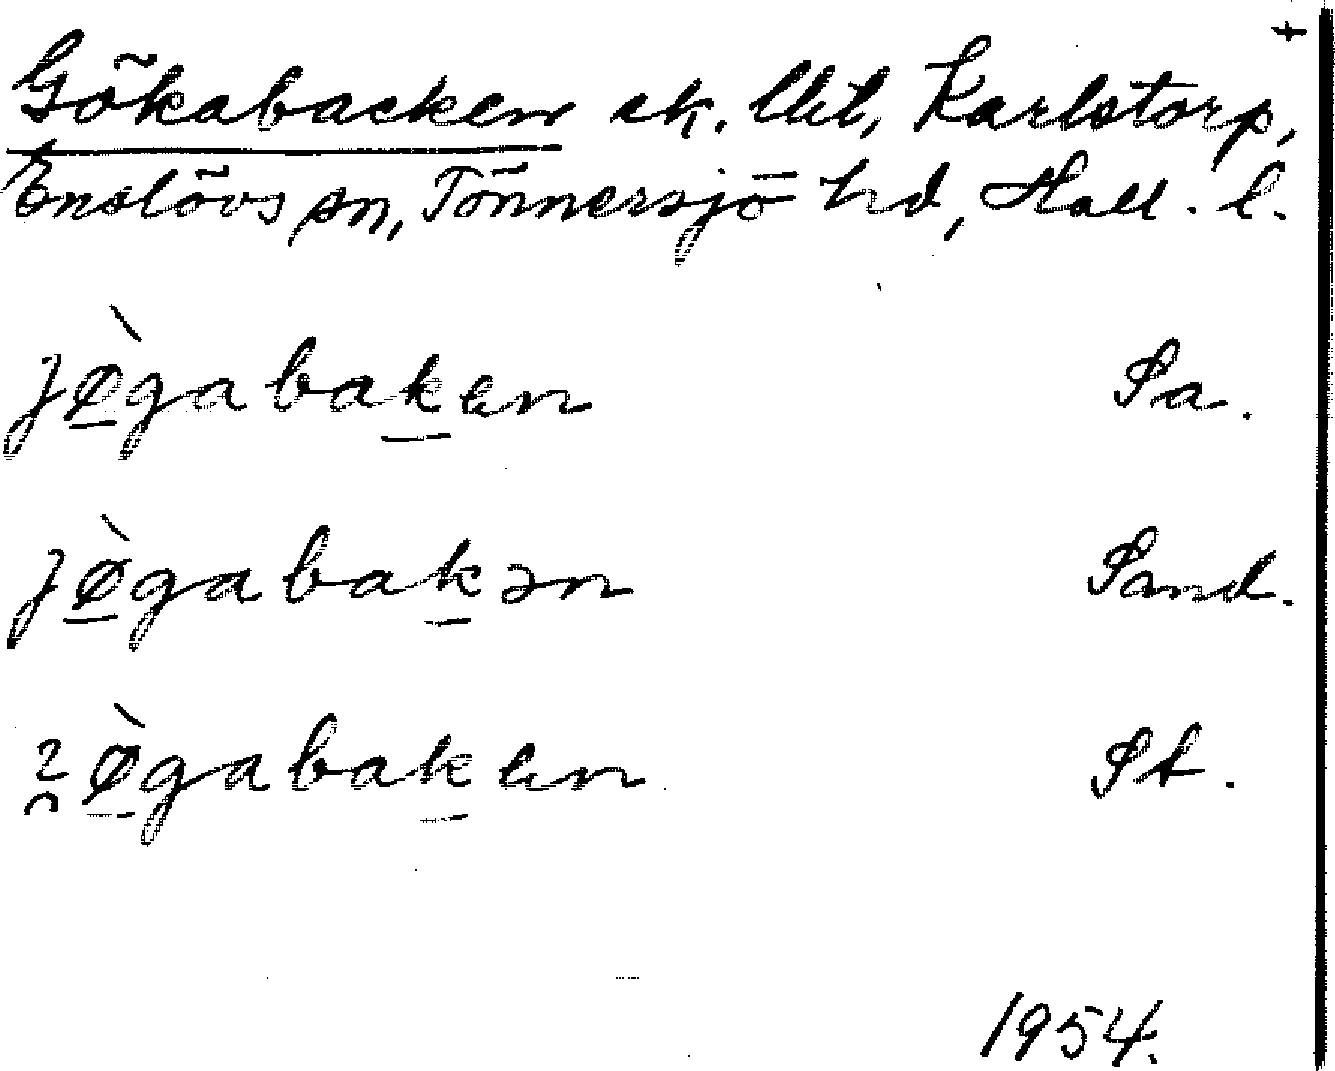 +
Gökabacken ck. lht, Karlstorp,
Enslövs sn, Tönnersjö hd, Hall. l.
jø̀gabaken Sa.
jø̀gabakən Sand.
ø̀gabaken St.
1954.